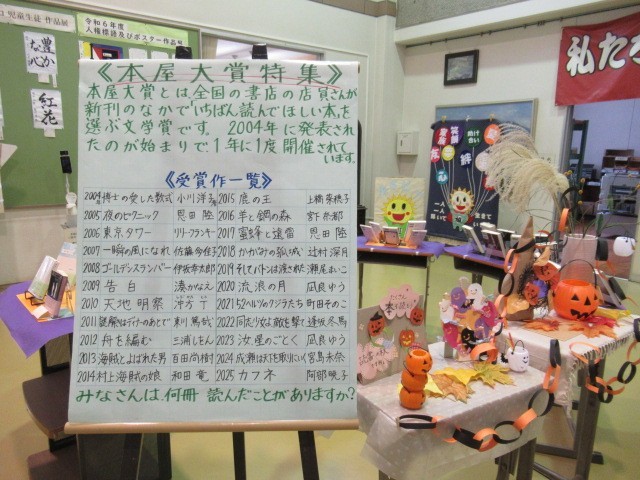 児童生徒 作品展
令和6年度
人権標語及びポスター作品展
豊かな心
紅花
私たち
《本屋大賞特集》
本屋大賞とは全国の書店の店員さんが
新刊のなかで「いちばん読んでほしい本」を
選ぶ文学賞です。2004年に発表され
たのが始まりで1年に1度開催されて
います。
《受賞作一覧》
2004 博士の愛した数式 小川洋子 2015 鹿の王 上橋菜穂子
2005 夜のピクニック 恩田陸 2016 羊と鋼の森 宮下奈都
2006 東京タワー リリー・フランキー 2017 蜜蜂と遠雷 恩田陸
2007 一瞬の風になれ 佐藤多佳子 2018 かがみの孤城 辻村深月
2008 ゴールデンスランバー 伊坂幸太郎 2019 そしてバトンは渡された 瀬尾まいこ
2009 告白 湊かなえ 2020 流浪の月 凪良ゆう
2010 天地明察 冲方丁 2021 52ヘルツのクジラたち 町田そのこ
2011 謎解きはディナーのあとで 東川篤哉 2022 同志少女よ敵を撃て 逢坂冬馬
2012 舟を編む 三浦しをん 2023 汝、星のごとく 凪良ゆう
2013 海賊とよばれた男 百田尚樹 2024 成瀬は天下を取りにいく 宮島未奈
2014 村上海賊の娘 和田竜 2025 カフネ 阿部暁子
みなさんは、何冊 読んだことがありますか?
笑顔
助け合い
絆
一人一人
輝いて
生きて
たくさん
本を読もう